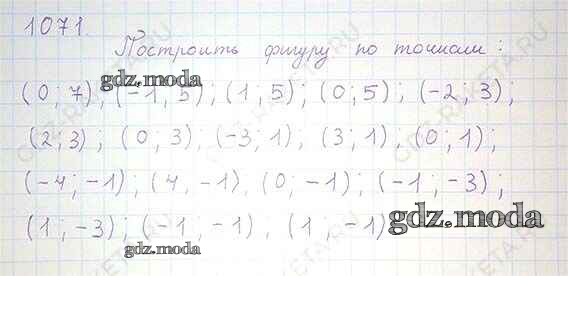 1071.
Построить фигуру по точкам:
gdz.moda
(0; 7); (-1; 5); (1; 5); (0; 5); (-2; 3);
(2; 3); (0; 3); (-3; 1); (3; 1), (0; 1);
(-4; -1); (4, -1), (0; -1); (-1; -3);
(1; -3); (-1; -1); (1; -1)
gdz.moda
gdz.moda